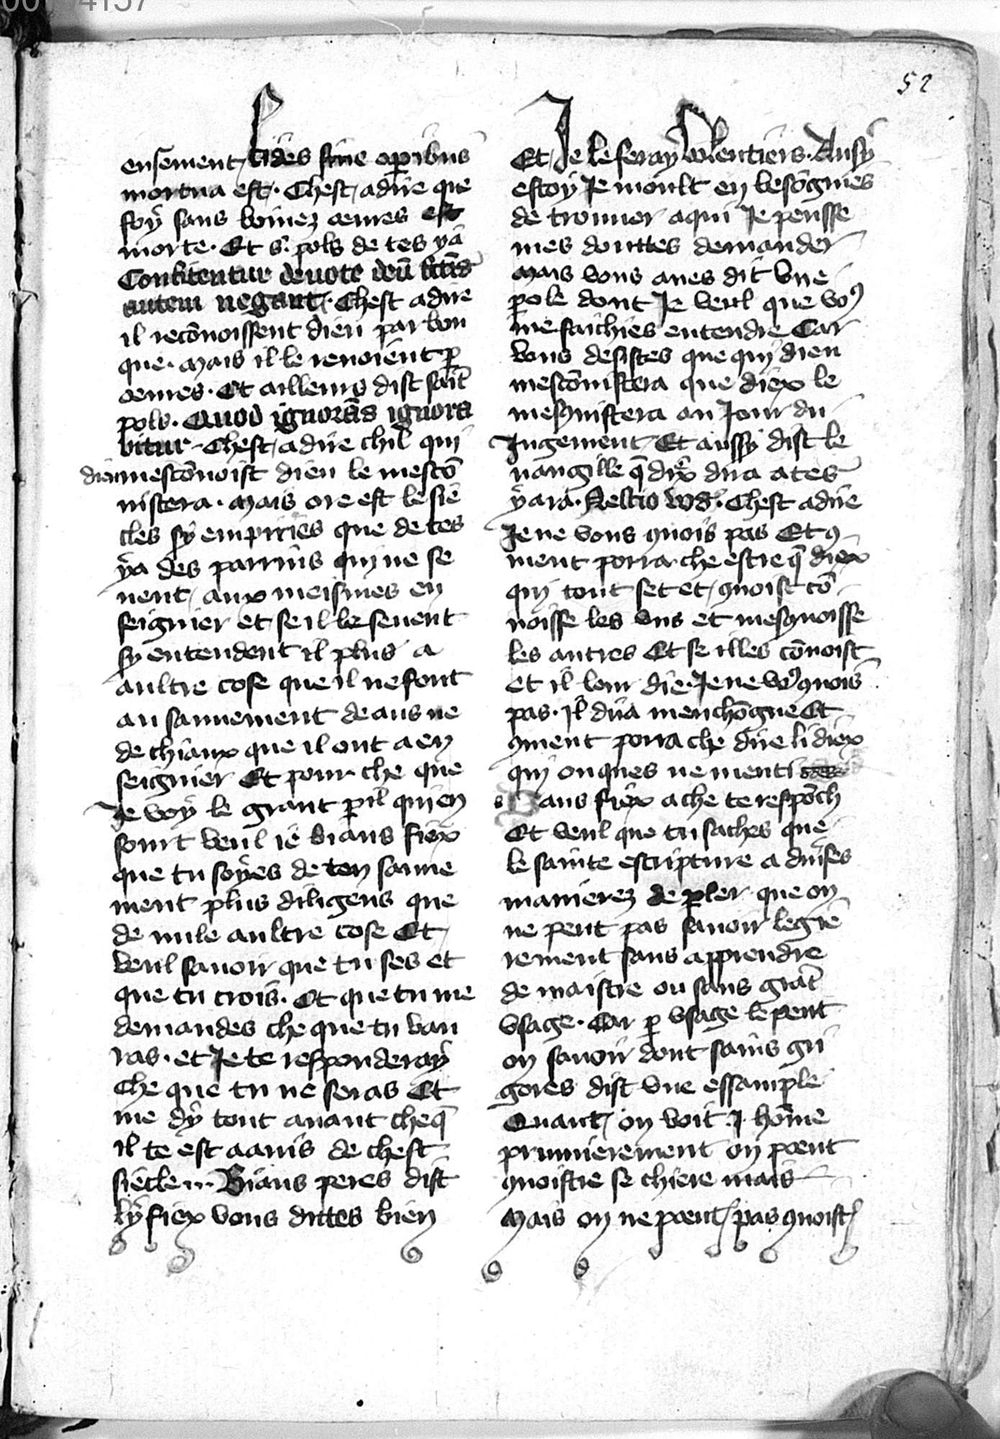 52
ensement / fides sine operibus
mortua est. Chest / adire que
foy sans boinez oeures est
morte. Et s. pols de tes ya
Confitentur devote deū fctīs
autem negant. Chest adire
il recōnoissent dieu par bou
que. mais il le renoient p
oeures. Et ailleurs dist saīt
pols. Quod ignorās ignora
bitur. Chest / adire chil qui
dieu mescōnoist dieu le mescō
nistera. mais ore est le sie
cles sy empiries que de tes
ya des parrins qui ne se
uent / aux meismes en
seignier et se il le seuent
sy entendent il plus a
aultre cose que il ne font
au sauuement de aus ne
de chiaux que il ont a en
seignier Et pour che que
Je voy le grant pil qui en
sourt veul ie biaus fiex
que tu soyes de ton sauue
ment plus diligens que
de nule aultre cose Et
veul sauoir que tu ses et
que tu crois. Et que tu me
demandes che que tu vau
ras. et Je te responderay
Che que tu ne seras Et
me dy tout auant che q̄
il te est auis de chest
siecle... Biaus peres dist
ly fiex vous dittes bien
Et Je le feray volentiers. Ausy
estoy Je moult en besōgnies
de trouuer a qui Je peusse
mes douttes demander
mais vous aues dit vne
pole dont Je veul que vo9
me faichies entendre Car
vous desistes que qui dieu
mescōnistera que diex le
mesqnistera au Jour du
Jugement Et aussy dist le
uangille q̄ diex dira a tes
yara. Nescio vos. Chest adire
Je ne vous qnois pas Et 9
ment porra che estre q̄ diex
qui tout set et / qnoist cō
noisse les vns et mesqnoisse
les autres Et se il les cōnoist
et il leur die. Je ne vo9 qnois
pas. Il dira menchōgne Et
9ment porra che dire li diex
qui onques ne menti
Biaus fiex a che te respōch
Et veul que tu saches que
le sainte escripture a diuses
manierez de pler que on
ne peut pas sauoir legie
rement sans apprendre
de maistre ou sans grāt
vsage. Car p vsage le peut
on sauoir dont sains gri
gores dist vne essample
Quant / on voit .j. hōme
prumierement on poeut
qnoistre se chiere mais
mais on ne poeut / pas qnoistr